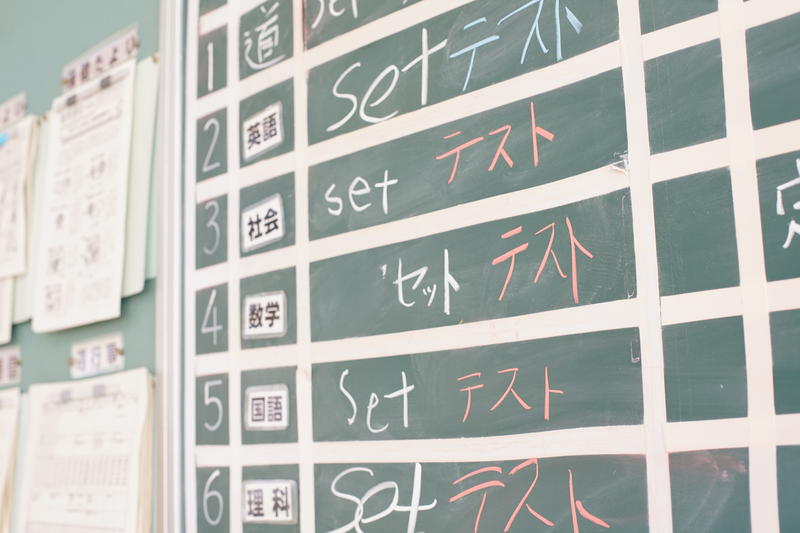 set
1 道 set テスト
2 英語 set テスト
3 社会 セット テスト
4 数学 set テスト
5 国語 set テスト
6 理科